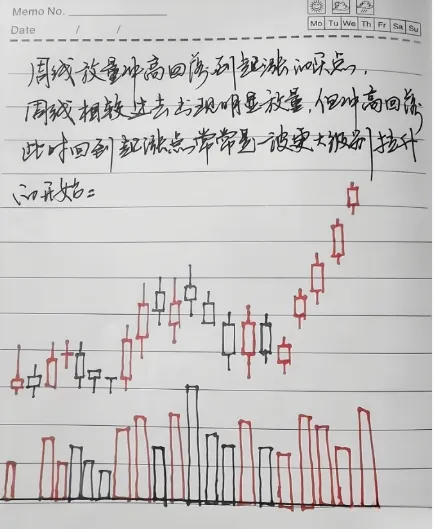 Memo No.
Date / /
Mo Tu We Th Fr Sa Su
周线放量冲高回落到起涨的买点,
周线相较过去出现明显放量,但冲高回落
此时回到起涨点常常是一波更大级别拉升
的开始: